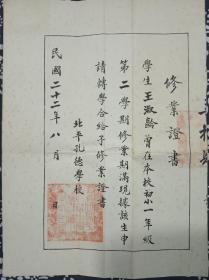 修業證書
學生王淑齡曾在本校初小一年級
第二學期修業期滿現據該生申
請轉學合給予修業證書
北平孔德學校
民國二十二年八月 日